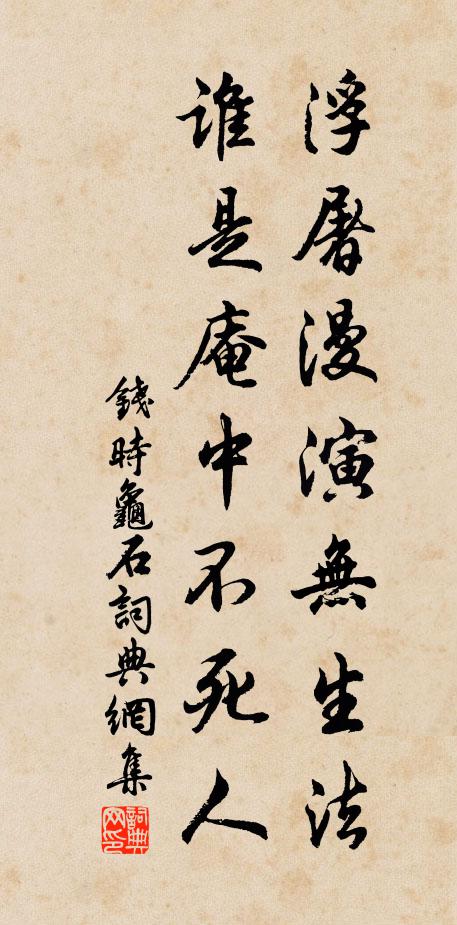 浮屠漫演無生法
誰是庵中不死人
錢時龜石詞典網集
詞典網印